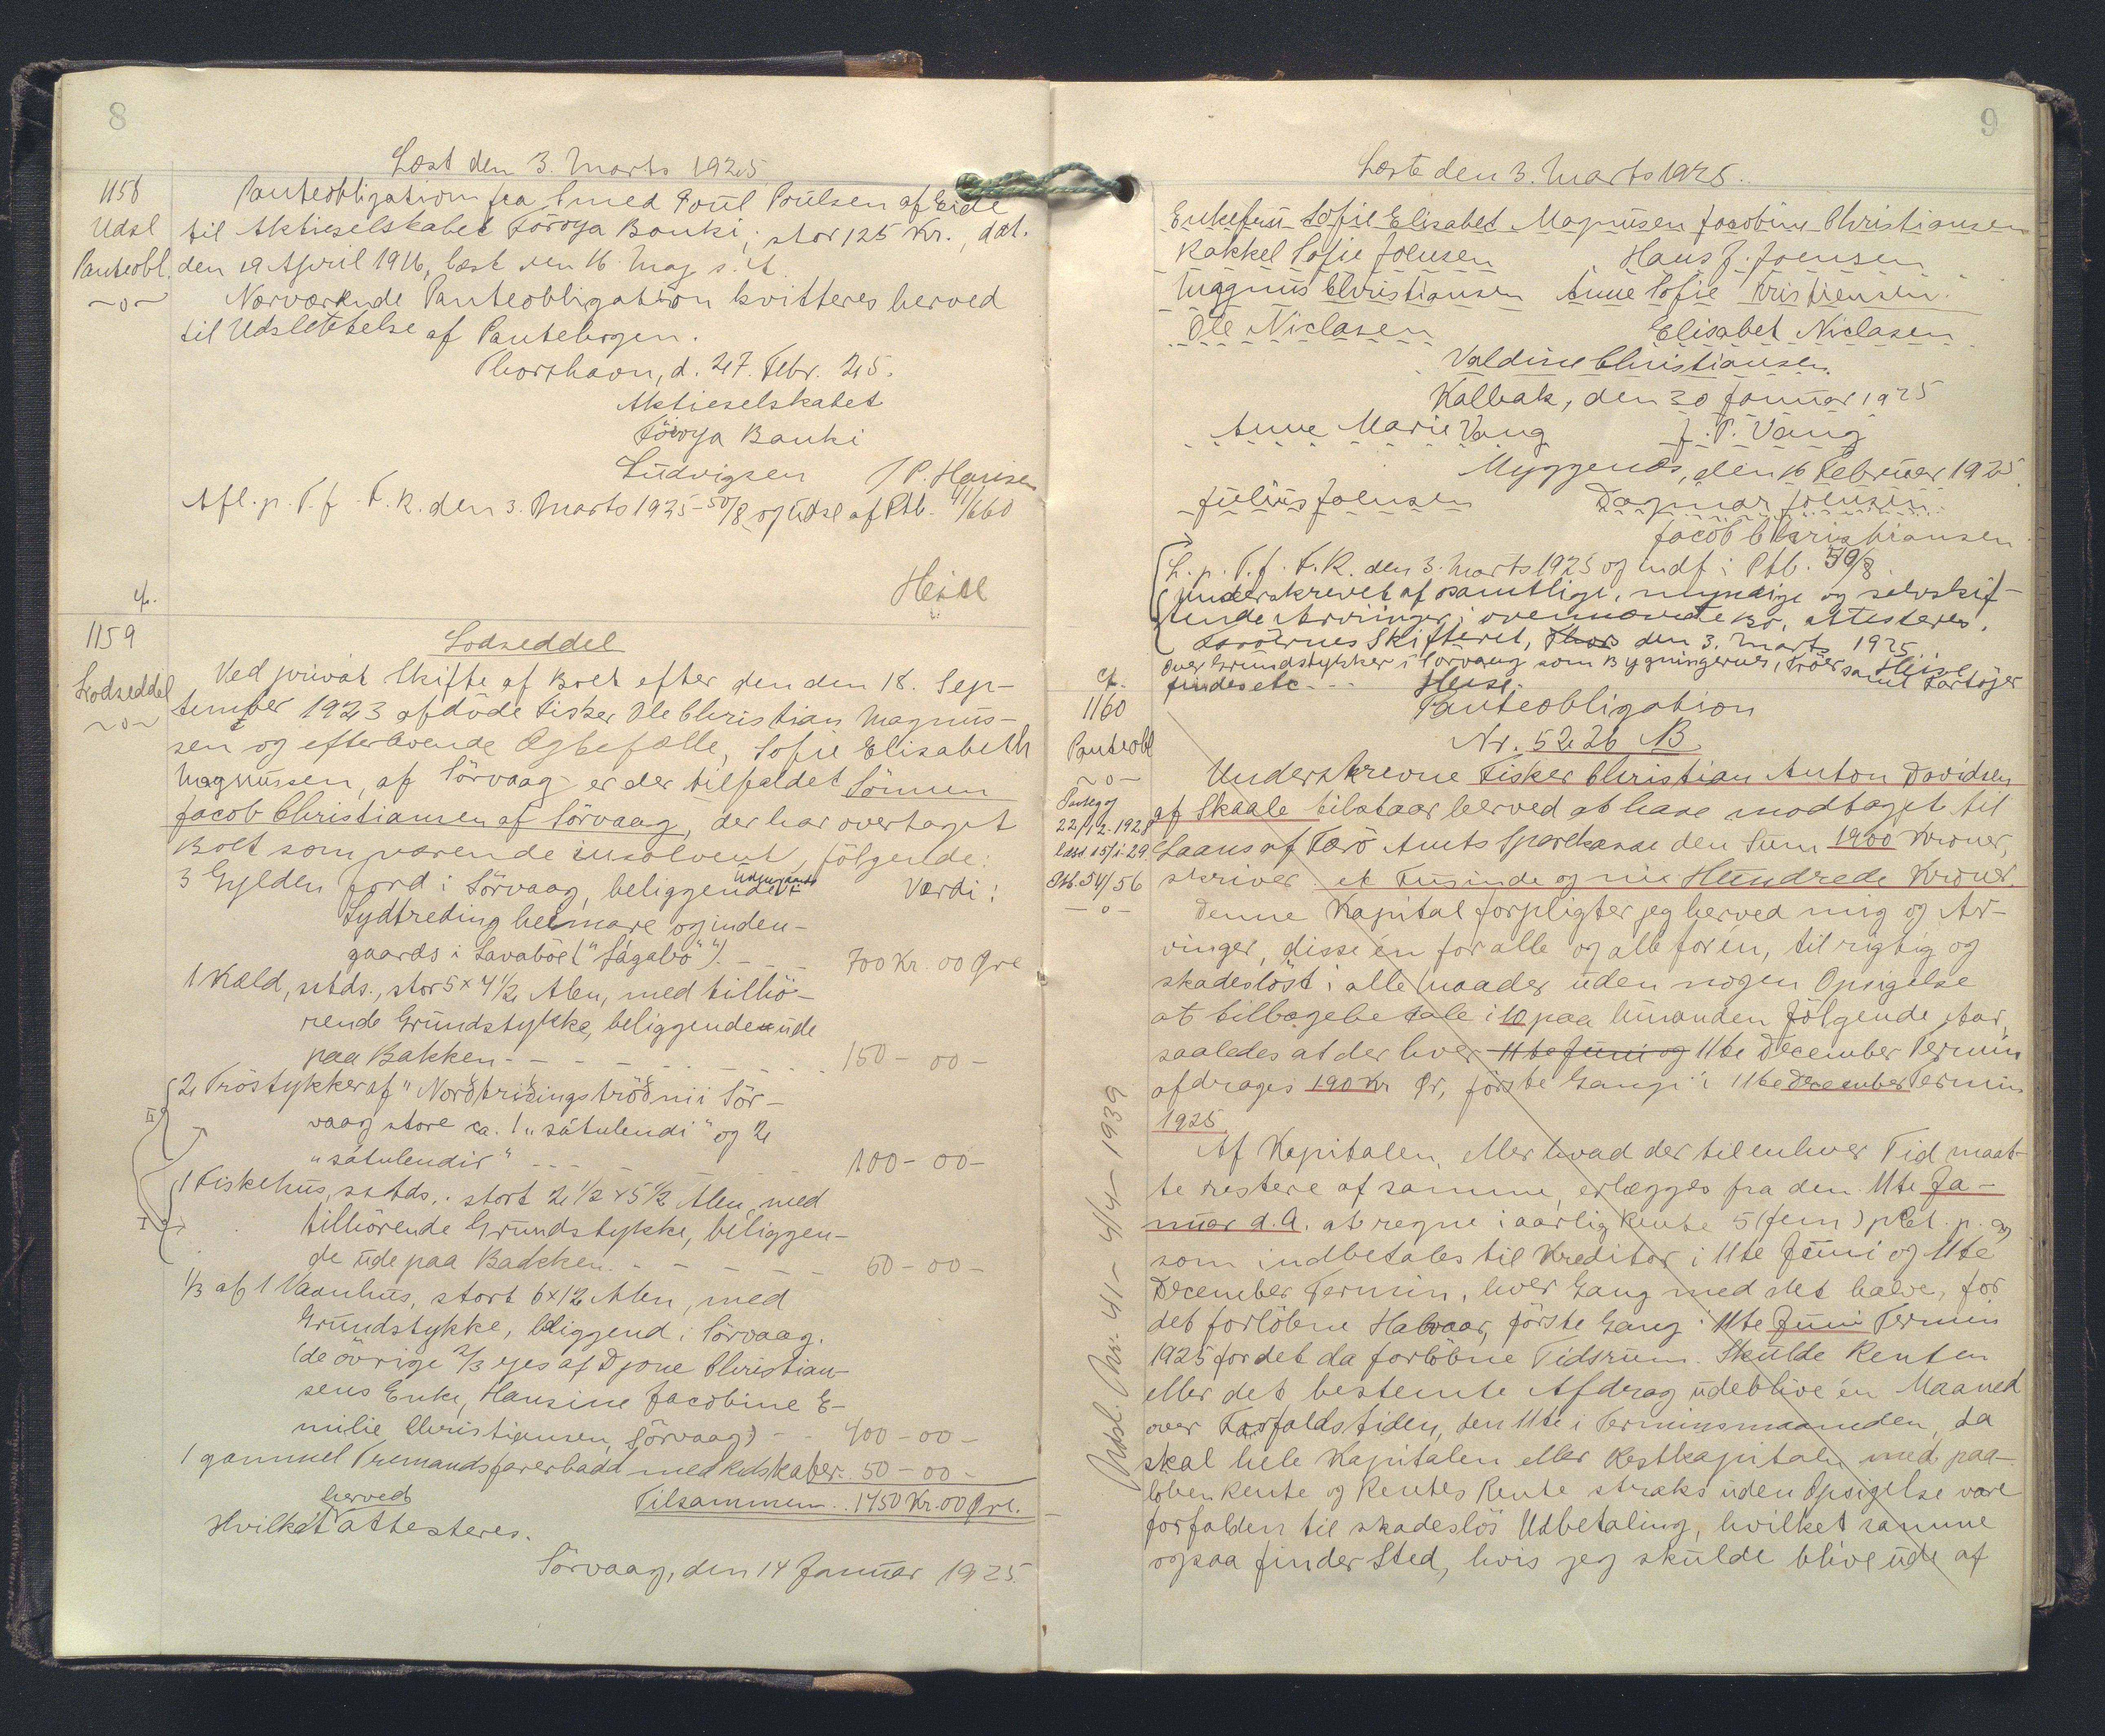 8
Læst den 3. Marts 1925
1158
Udsl
Panteobl.
Panteobligation fra Smed Poul Poulsen af Eide
til Aktieselskabet Föroya Banki, stor 125 Kr., dat.
den 19 April 1916, læst den 16. Maj s. A.
Nærværende Panteobligation kvitteres herved
til Udslettelse af Pantebogen.
Thorshavn, d. 27. Febr. 25.
Aktieselskabet
Föroya Banki
Ludvigsen J P. Hansen
Afl. p. T. f. F. R. den 3. Marts 1925 - 50/8 og Udsl af Ptb. 41/660
Heise
cf.
1159
Lodseddel
Lodseddel
Ved privat Skifte af Boet efter den den 18. Sep-
tember 1923 afdöde Fisker Ole Christian Magnus-
sen og efterlevende Ægtefælle, Sofie Elisabeth
Magnussen, af Sörvaag er der tilfaldet Sönnen
Jacob Christiansen af Sörvaag, der har overtaget
Boet som værende insolvent, følgende:
3 Gylden Jord i Sörvaag, beliggende udengaards Værdi:
Sydtreding heimare og inden-
gaards i Lavaböet ("Lágabö") - - - 700 Kr. 00 Øre
1 Kæld, sstds., stor 5 x 4 1/2 Alen, med tilhö-
rende Grundstykke, beliggende ude
paa Bakken - - - 150 - 00 -
2 Tröstykker af "Norðtriðingströðni i Sör-
vaag store ca. 1 "sátulendi" og 2
"sátulendir" - - - 100 - 00 -
II
1 Fiskehus, sstds., stort 2 1/2 x 5 1/2 Alen, med
I
tilhörende Grundstykke, beliggen-
de ude paa Bakken. - - - 50 - 00 -
1/3 af 1 Vaanhus, stort 6 x 12 Alen, med
Grundstykke, beliggend i Sörvaag.
(de övrige 2/3 ejes af Djone Christian-
sens Enke, Hansine Jacobine E-
milie Christiansen, Sörvaag) - - 400 - 00 -
1 gammel Tremandsfarerbaad med Redskaber. 50 - 00 -
Tilsammen .. 1450 Kr. 00 Øre.
Hvilket herved attesteres.
Sörvaag, den 14 Januar 1925.
9
Læst den 3. Marts 1925.
Enkefru Sofie Elisabet Magnusen Jacobine Christiansen
Rakkel Sofie Joensen Hans J. Joensen
Magnus Christiansen Anne Sofie Kristiensen.
Ole Niclasen Elisabet Niclasen
Valdine Christiansen
Kalbak, den 30 Januar 1925
Anne Marie Vang J. P. Vang
Myggenæs, den 16 Februar 1925.
Julius Joensen Dagmar Joensen
Jacob Christiansen
L. p. T. f. F. R. den 3. Marts 1925 og indf i Ptb. 50/8.
Underskrevet af samtlige, myndige og selvskif-
tende Arvinger i ovennævnte Bo, attesteres.
Færöernes Skifteret, Thor den 3. Marts 1925
Heise
Over Grundstykker i Sörvaag som Bygningerne, Tröer samt Fartöjer
findes etc. - - Heise.
cf.
1160
Panteobl
Panteobligation
Nr. 5226 B.
Underskrevne Fisker Christian Anton Davidsen
af Skaale tilstaar herved at have modtaget til
Laans af Færö Amts Sparekasse den Sum 1900 Kroner,
skriver et Tusinde og nie Hundrede Kroner.
22/12-1928
læst 15/1-29
Ptb. 54/56
Denne Kapital forpligter jeg herved mig og Ar-
vinger, disse én for alle og alle for én, til rigtig og
skadeslöst i alle Maader uden nogen Opsigelse
at tilbagebetale i 10 paa hinanden fölgende Aar,
saaledes at der hver 11te Juni og 11te December Termin
afdrages 190 Kr Ør, förste Gang i 11te December Termin
1925.
Af Kapitalen, eller hvad der til enhver Tid maat-
te restere af samme, erlægges fra den 11te Ja-
nuar d. A. at regne i aarlig Rente 5 (fem) pCt. p. a,
som indbetales til Kreditor i 11te Juni og 11te
December Termin, hver Gang med det halve, for
det forlöbne Halvaar, förste Gang i 11te Juni Termin
1925 for det da forlöbne Tidsrum. Skulde Renten
eller det bestemte Afdrag udeblive én Maaned
over Forfaldstiden, den 11te i Terminsmaaneden, da
skal hele Kapitalen eller Restkapitalen med paa-
löben Rente og Rentes Rente straks uden Opsigelse være
forfalden til skadeslös Udbetaling, hvilket samme
ogsaa finder Sted, hvis jeg skulde blive ude af
Udsl. Nr. 41 - 4/4 - 1939